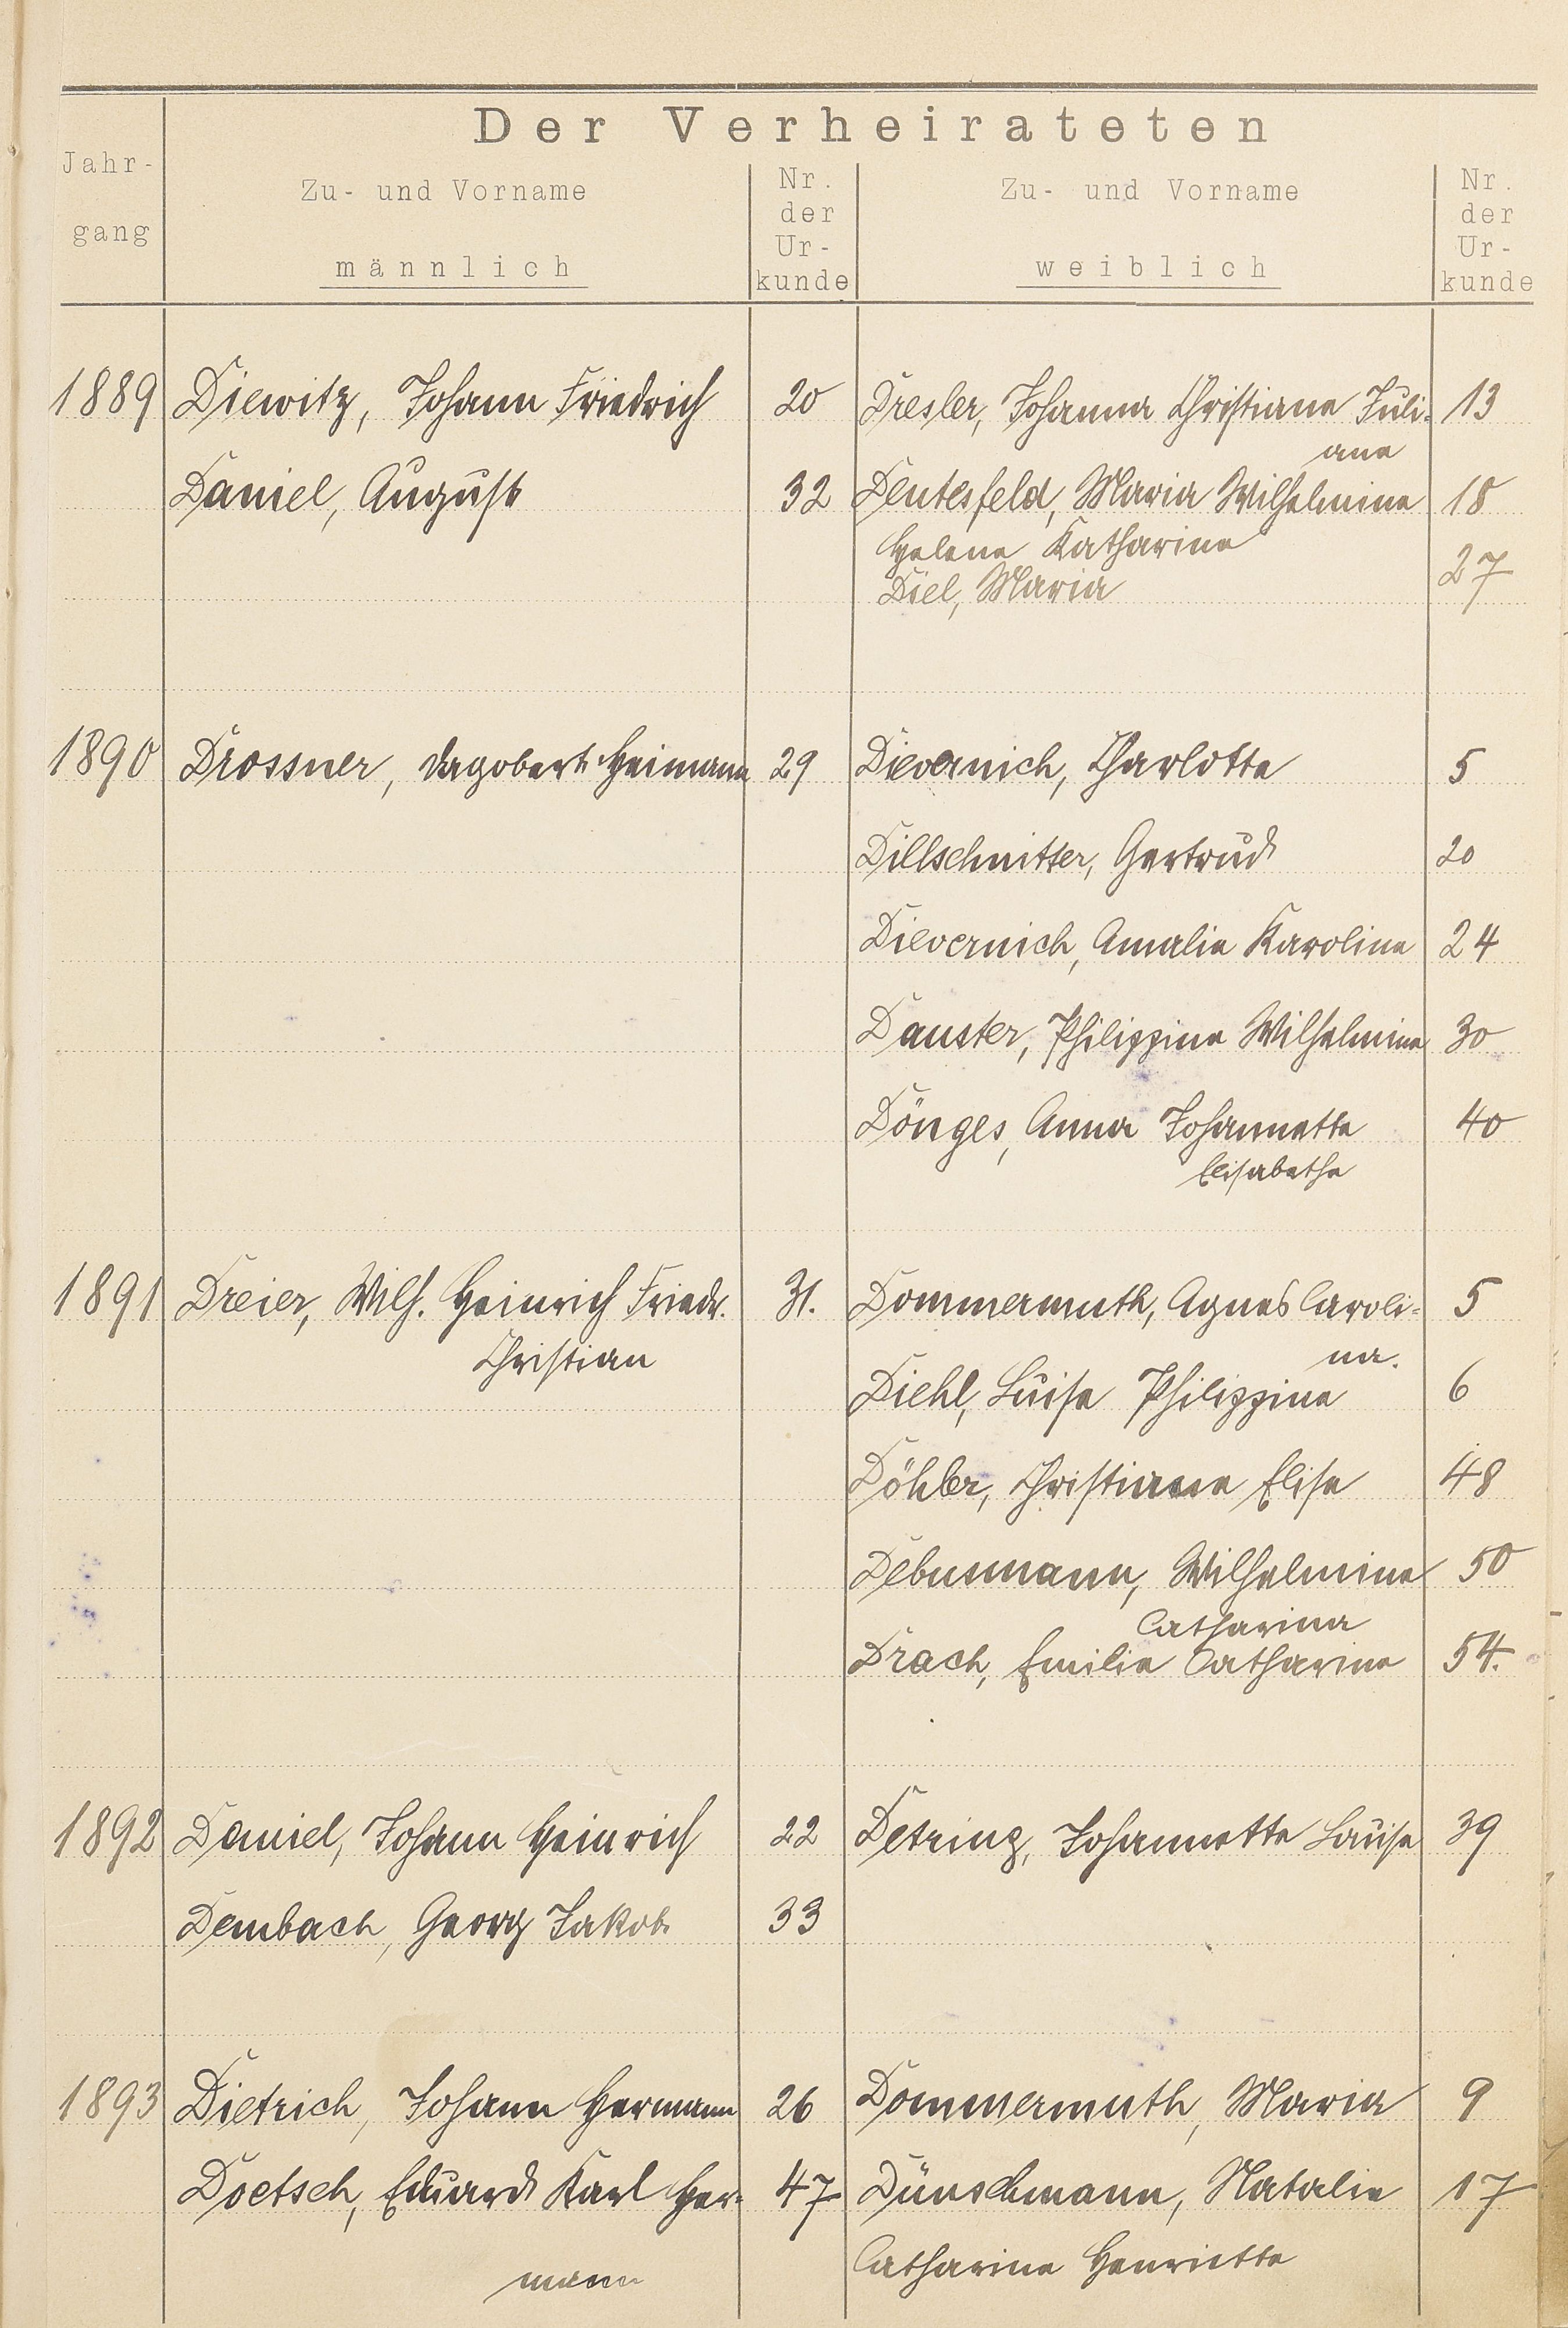 Der Verheirateten
Jahr-
gang
Zu- und Vorname
männlich
Nr.
der
Ur-
kunde
Zu- und Vorname
weiblich
Nr.
der
Ur-
kunde
1889 Diewitz, Johann Friedrich 20 Dresler, Johanna Christiane Juli- 13
ane
Daniel, August 32 Dentesfeld, Maria Wilhelmine 18
Helene Katharine
Diel, Maria 27
1890 Drossner, Dagobert Heimann 29 Dievernich, Charlotte 5
Dillschnitter, Gertrud 20
Dievernich, Amalie Karoline 24
Dauster, Philippine Wilhelmine 30
Dönges, Anna Johannette 40
Elisabethe
1891 Dreier, Wilh. Heinrich Friedr. 31. Dommermuth, Agnes Caroli- 5
Christian na.
Diehl, Luise Philippine 6
Döhler, Christiane Elise 48
Debusmann, Wilhelmine 50
Catharina
Drach, Emilie Catharine 54.
1892 Daniel, Johann Heinrich 22 Detring, Johannette Lauise 39
Dembach, Georg Jakob 33
1893 Dietrich, Johann Hermann 26 Dommermuth, Maria 9
Doetsch, Eduard Karl Her- 47 Dünschmann, Natalie 17
mann Catharine Henriette